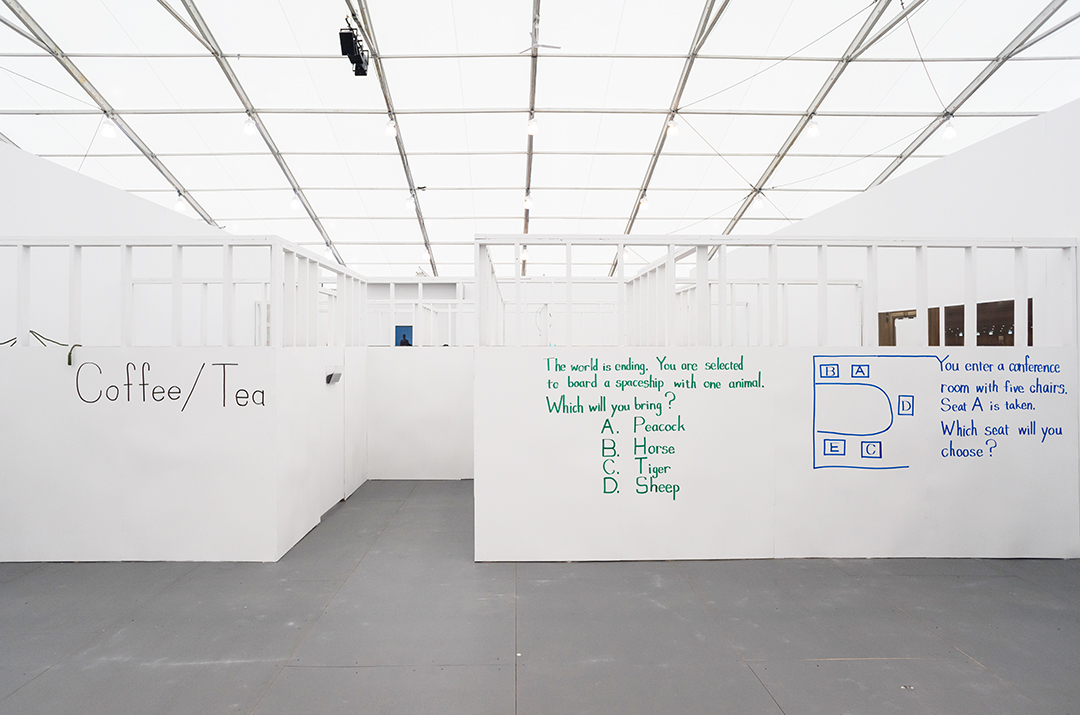 Coffee/Tea
The world is ending. You are selected
to board a spaceship with one animal.
Which will you bring?
A. Peacock
B. Horse
C. Tiger
D. Sheep
B A
D
E C
You enter a conference
room with five chairs.
Seat A is taken.
Which seat will you
choose?